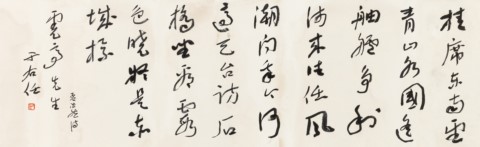 挂席东南望
青山水國遥
舳艫争利
涉来往任风
潮问我今何
適天台访石
橋坐看霞
色曉疑是赤
城標
孟浩然诗
先生
于右任